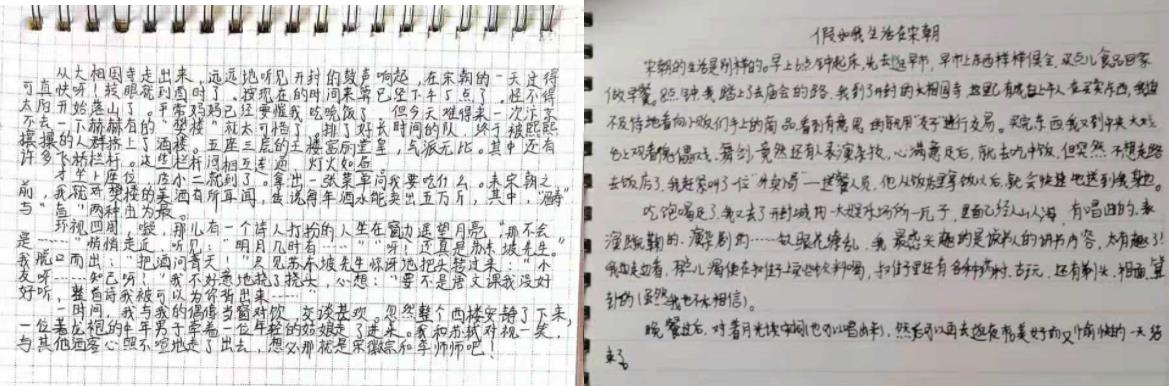 从大相国寺走出来，远远地听见开封的鼓声响起，在宋朝的一天过得
可真快呀！转眼就到酉时了。按现在的时间来算已经下午了点了。怪不得
太阳开始落山了。平常妈妈已经要催我吃晚饭了，但今天难得来一次汴京
不去一下赫赫有的"樊楼"就太可惜了。排了好长时间的队，终于被熙熙
攘攘的人群挤上了酒楼。五座三层的主楼富丽堂皇，气派无比。其中还有
许多飞桥栏杆。这些栏杆间相互连通，灯火如昼。
才坐上座位，店小二就到了。拿出一张菜单问我要吃什么。来宋朝之
前，我就对樊楼的美酒有所耳闻，据说每年酒水能卖出五万斤，其中，"
与" "两种出为最。
环视四周，嗳，那儿有一个诗人打扮的人坐在窗边遥望月亮，"那不会
是……"悄悄走近，听见："明月几时有……""呀！还真是苏东坡先生。"
我脱口而出："把酒问青天！"只见苏东坡先生惊讶地把头转过来："小
友呀……知己呀！"我不好意地挠了挠头，心想："要不是语文课我没好
好听，整首诗我被可以为你背出来……"
一时间，我与我的偶像当窗对饮，交谈甚欢。忽然整个西楼安静了下来，
一位着龙袍的中年男子牵着一位年轻的姑娘走了进来。我和苏轼对视一笑，
与其他酒客心照不喧地走了出去，想必那就是宋徽宗和李师师吧！
假如我生活在宋朝
宋朝的生活是别样的。早上6点钟起床，先去逛早市，早市上东西样样俱全，买点儿食品回家
做早餐。 我踏上了去庙会的路，我到了开封的大相国寺 这里有成百上千人在买卖东西，我迫
不及待地看向小贩们手上的商品，看到有意思 的就用"交子"进行交易。买完东西，我又到中央大戏
台上观看傀儡戏、舞剑，竟然还有人表演杂技，心满意足后，就去吃中饭，但突然不想走路
去饭店了，我赶紧叫了一位"外卖局"一送餐人员，他从饭店里拿饭以后，就会快速地送到我身边。
吃饱喝足了，我又去了开封城内一大娱乐场所一瓦子，里面已经人山人海，有唱曲的、表
演蹴鞠的、演杂剧的……眼花缭乱，我最感兴趣的是说书人的讲书内容，太有趣了！
我边走边看，有点儿渴便在 上买些饮料喝， 里还有各种药材、古玩，还有剃头、相面、算
卦的(虽然我也不相信)。
晚餐过后，对着月光读宋词(也可以唱出来)，然后可以再去逛夜市，美好而又愉快的一天结
束了。